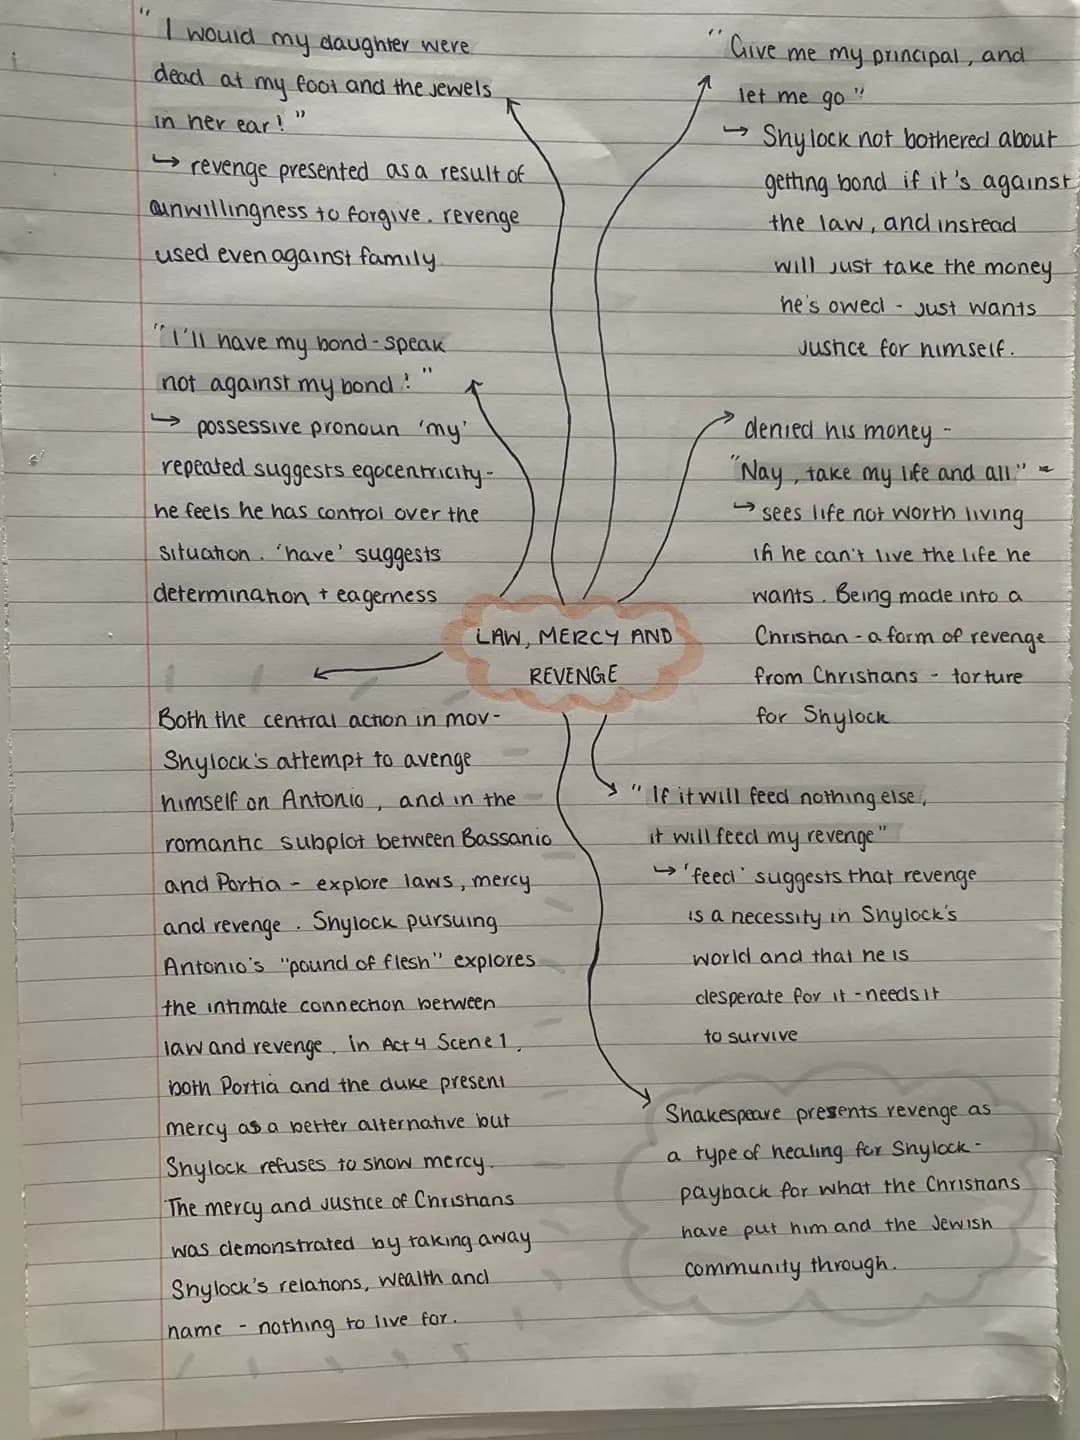 " I would my daughter were
dead at my foot and the jewels
in her ear! "
↳ revenge presented as a result of
unwillingness to forgive. revenge
used even against family
"I'll have my bond - speak
not against my bond! "
↳ possessive pronoun 'my'
repeated suggests egocentricity -
he feels he has control over the
situation. 'have' suggests
determination + eagerness
"Give me my principal, and
let me go"
↳ Shylock not bothered about
getting bond if it's against
the law, and instead
will just take the money
he's owed - just wants
justice for himself.
denied his money -
"Nay, take my life and all" -
↳ sees life not worth living
if he can't live the life he
wants. Being made into a
Christian - a form of revenge
from Christians - torture
for Shylock
LAW, MERCY AND
REVENGE
Both the central action in mov-
Shylock's attempt to avenge
himself on Antonio, and in the
romantic subplot between Bassanio
and Portia - explore laws, mercy
and revenge. Shylock pursuing
Antonio's "pound of flesh" explores
the intimate connection between
law and revenge. in Act 4 Scene 1,
both Portia and the duke present
mercy as a better alternative but
Shylock refuses to show mercy.
The mercy and justice of Christians
was demonstrated by taking away
Shylock's relations, wealth and
name - nothing to live for.
" If it will feed nothing else,
it will feed my revenge"
↳ 'feed' suggests that revenge
is a necessity in Shylock's
world and that he is
desperate for it - needs it
to survive
Shakespeare presents revenge as
a type of healing for Shylock -
payback for what the Christians
have put him and the Jewish
community through.